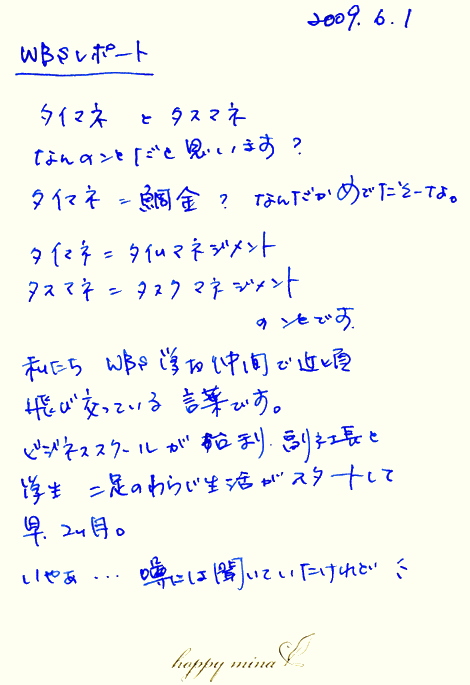 2009.6.1
WBSレポート
タイマネ と タスマネ
なんのことだと思います?
タイマネ=鯛金? なんだかめでたそーなよ。
タイマネ=タイムマネジメント
タスマネ=タスクマネジメント
のことです
私たち WBS学お仲間で近頃
飛び交っている 言葉です。
ビジネススクールが 始まり、副社長と
学生 二足のわらじ生活がスタートして
早、2ヶ月。
いやぁ… 噂には聞いていたけれど
happy mina